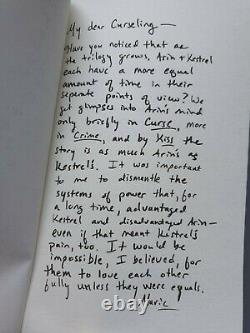 My dear Curseling—
Have you noticed that as
the trilogy grows, Arin + Kestrel
each have a more equal
amount of time in their
separate points of view? We
get glimpses into Arin's mind
only briefly in Curse, more
in Crime, and by Kiss the
story is as much Arin's as
Kestrel's. It was important
to me to dismantle the
systems of power that, for
a long time, advantaged
Kestrel and disadvantaged Arin—
even if that meant Kestrel's
pain, too. It would be
impossible, I believed, for
them to love each other
fully unless they were equals.
—Marie